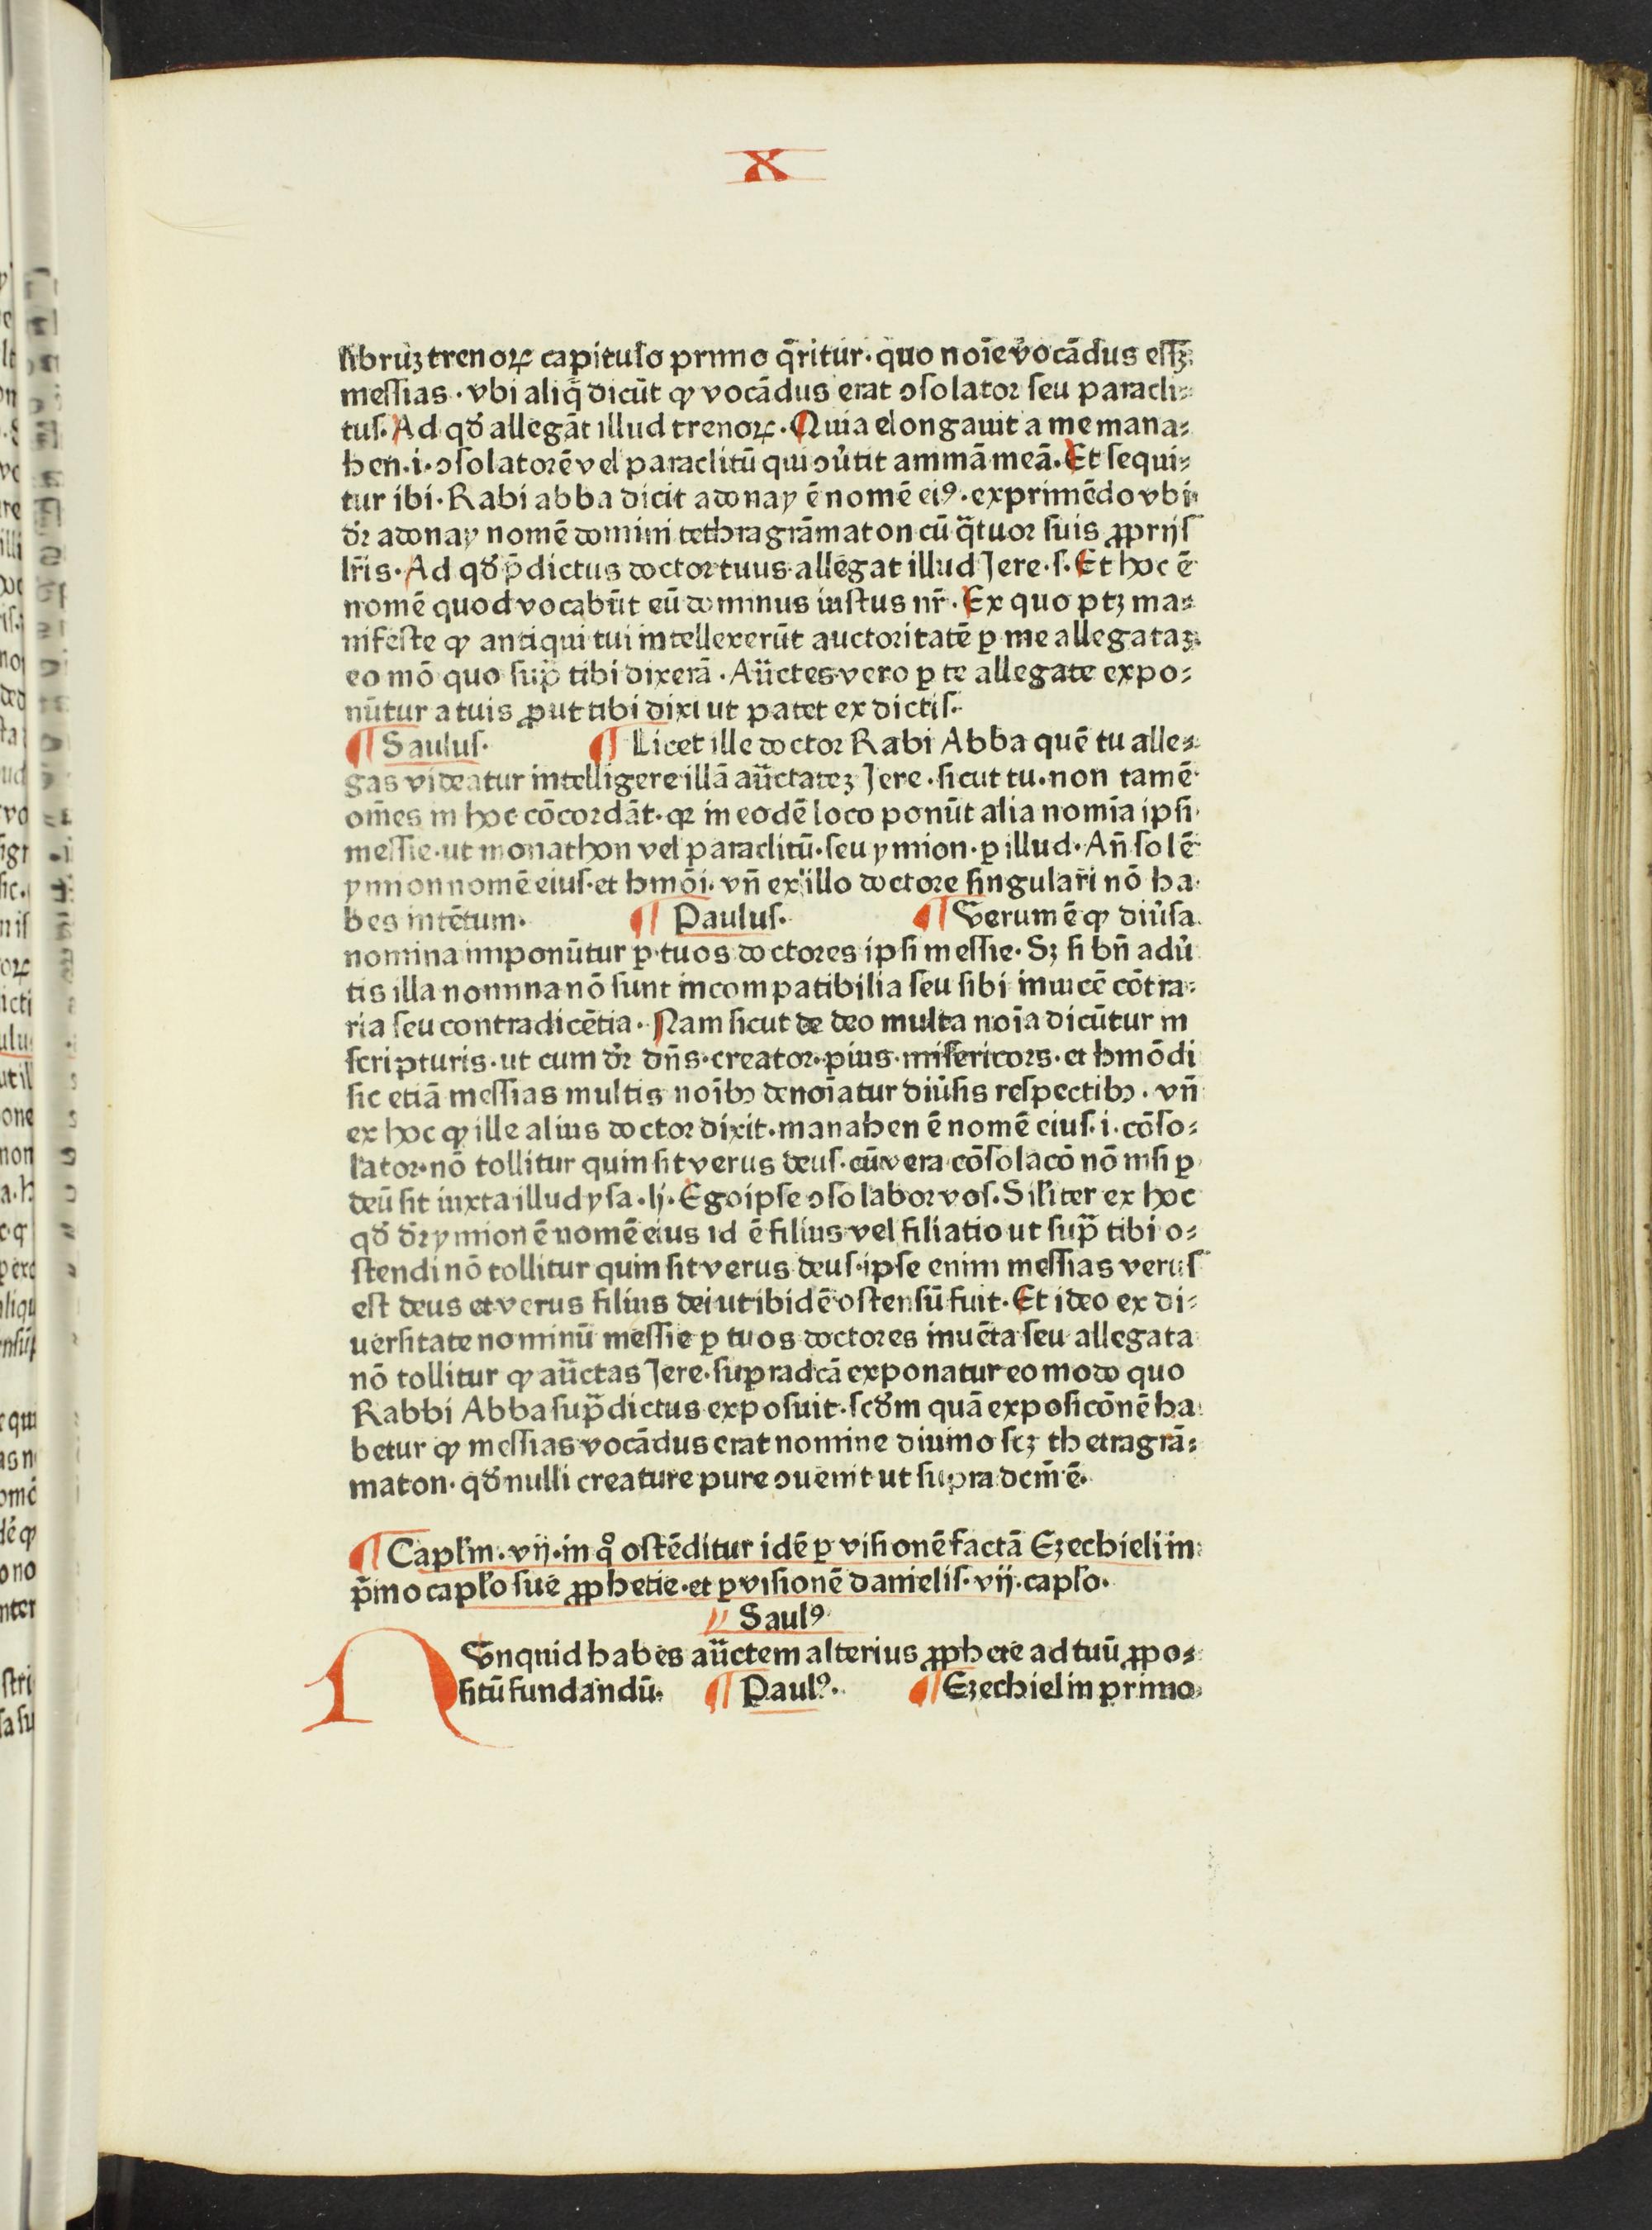 X
libruꝫ trenoꝝ capitulo primo q̄ritur· quo noīe vocādus eſſꝫ
meſſias · vbi aliq̄ dicūt ꝙ vocādus erat ↄſolator ſeu paracli⸗
tuſ. Ad qđ allegāt illud trenoꝝ · Quia elongauit a me mana⸗
hen · i · ↄſolatorē vel paraclitū qui ↄu̓tit animā meā. Et ſequi⸗
tur ibi · Rabi abba dicit adonay ē nomē eiꝰ · exprimēdo vbi
dr̄ adonay nomē domini tethragrāmaton cū q̄tuor ſuis ꝓprijſ
lr̄is · Ad qđ p̄dictus doctor tuus allegat illud Jere · ſ. Et hoc ē
nomē quod vocabūt eū dominus iuſtus nr̄ · Ex quo ptꝫ ma⸗
nifeſte ꝙ antiqui tui intellexerūt auctoritatē ꝑ me allegataꝫ
eo mō quo ſup̄ tibi dixerā · Aūctes vero ꝑ te allegate expo⸗
nūtur a tuis ꝓut tibi dixi ut patet ex dictiſ.
¶ Sauluſ· ¶ Licet ille doctor Rabi Abba quē tu alle⸗
gas videatur intelligere illā aūctateꝫ Jere · ſicut tu · non tamē
om̄es in hoc cōcordāt · qꝛ in eodē loco ponūt alia nomīa ipſi
meſſie · ut monathon vel paraclitū · ſeu ymion · ꝑ illud · An̄ ſolē
ynnon nomē eiuſ · et hmōi · vn̄ ex illo doctore ſingulari nō ha
bes intētum· ¶ Pauluſ· ¶ Verum ē ꝙ diu̓ſa
nomina imponūtur ꝑ tuos doctores ipſi meſſie · Sꝫ ſi bn̄ adu̓
tis illa nomina nō ſunt incompatibilia ſeu ſibi inuicē cōtra⸗
ria ſeu contradicētia · Nam ſicut de deo multa noīa dicūtur in
ſcripturis · ut cum dr̄ dn̄s · creator · pius · miſericors · et hmōdi
ſic etiā meſſias multis noībꝰ denoīatur diu̓ſis reſpectibꝰ · vn̄
ex hoc ꝙ ille alius doctor dixit · manahen ē nomē eiuſ · i · cōſo⸗
lator · nō tollitur quin ſit verus deuſ · cū vera cōſolacō nō niſi ꝑ
deū ſit iuxta illud yſa · lj · Ego ipſe ↄſolabor voſ. Siliter ex hoc
qđ dr̄ ymion ē nomē eius id ē filius vel filiatio ut ſup̄ tibi o⸗
ſtendi nō tollitur quin ſit verus deuſ · ipſe enim meſſias veruſ
eſt deus et verus filius dei ut ibidē oſtenſū fuit · Et ideo ex di⸗
uerſitate nominū meſſie ꝑ tuos doctores inuēta ſeu allegata
nō tollitur ꝙ aūctas Jere · ſupradcā exponatur eo modo quo
Rabbi Abba ſup̄dictus expoſuit · ſcđm quā expoſicōnē ha
betur ꝙ meſſias vocādus erat nomine diuino ſcꝫ thetragrā⸗
maton · qđ nulli creature pure ↄuenit ut ſupra dcm̄ ē.
¶ Capl̓m · vij · in q̊ oſtēditur idē ꝑ viſionē factā Ezechieli in
p̄mo capl̓o ſue ꝓphetie · et ꝑ viſionē danieliſ · vij · capl̓o·
Saulꝰ
NVnquid habes aūctem alterius ꝓphete ad tuū ꝓpo⸗
ſitū fundandū· ¶ Paulꝰ· ¶ Ezechiel in primo